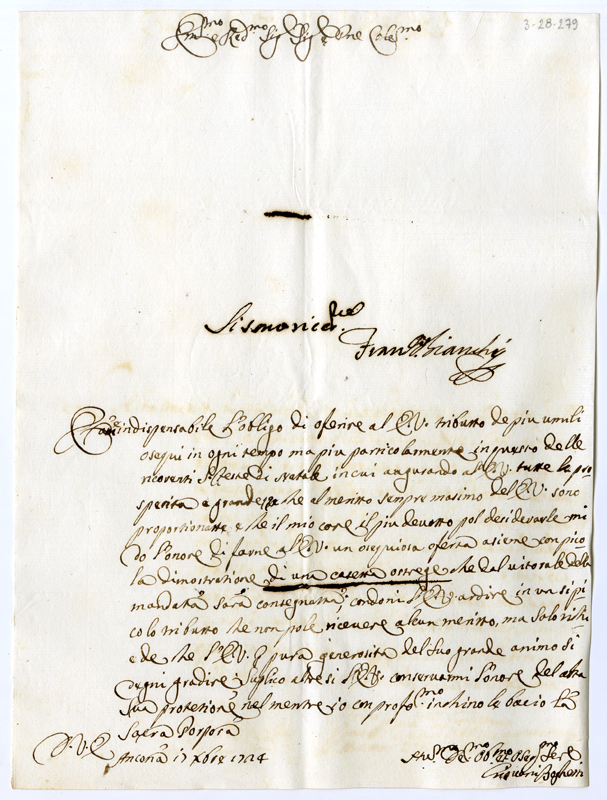 3-28-279
Em.mo e Red.mo Sig. Sig. Prne Col.mo
Si smarica
Fran.co Bianchi
indispensabile l'obligo di oferire al E.V. tributto de piu umili
osequi in ogni tempo ma piu particolarmente in questo delle
ricorenti S. Feste di Natale in cui augurando al E.V. tutte le pro=
sperita e grandeze che al meritto sempre masimo del E.V. sono
proportionatte e che il mio core il piu devotto pol desiderarle mi
do l'onore di farne al E.V. un osequiosa oferta asieme con pico=
la dimostratione di una casetta ostreghe che dal vitorale della
mandata sarà consegnatta; condoni l'E.V. ardire in un si pi
colo tributto che non pole ricevere alcun meritto, ma solo
e de che l'E.V. pura generosità del suo grande animo si
degni gradire Suplico altresi l'E.V. conservarmi l'onore del alta
sua protetione nel mentre io con profo.mo inchino le bacio la
Sacra Porpora
D. V. E.
Ancona 17 Xbre 1724